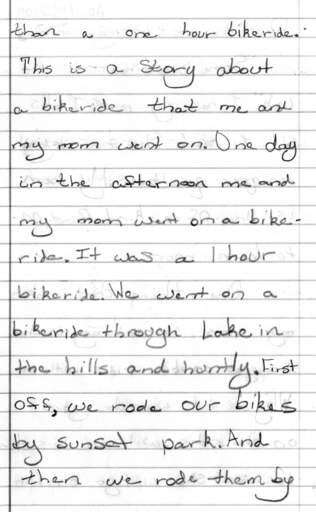 than a one hour bikeride.
This is a story about
a bikeride that me and
my mom went on. One day
in the afternoon me and
my mom went on a bike-
ride. It was a 1 hour
bikeride. We went on a
bikeride through Lake in
the hills and huntly. First
off, we rode our bikes
by sunset park. And
then we rode them by